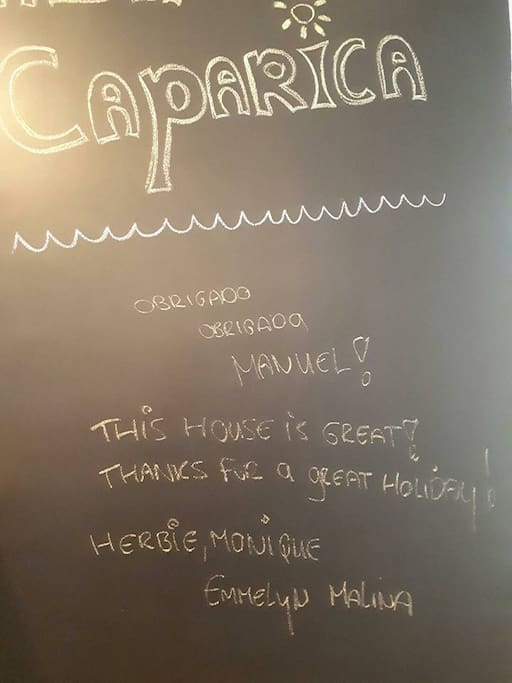 CAPARICA
OBRIGADO
OBRIGADA
MANUEL!
THIS HOUSE IS GREAT!
THANKS FOR a gREAT HOLIDAY!
HERBIE, MONIQUE
EMMELYN MALINA